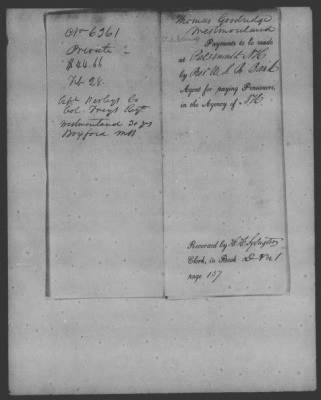 No 6361
Private
$44.66
Feb 28.
Capt. Co
Col. Fryes Regt
Westmoreland 30 ys
Boxford Mss
Thomas Goodridge
Westmoreland
Payments to be made
at Portsmouth NH
by U.S. B. Bank
Agent for paying Pensioners,
in the Agency of NH.
Recovered by
Clerk, in Book D Vol. 1
page 157